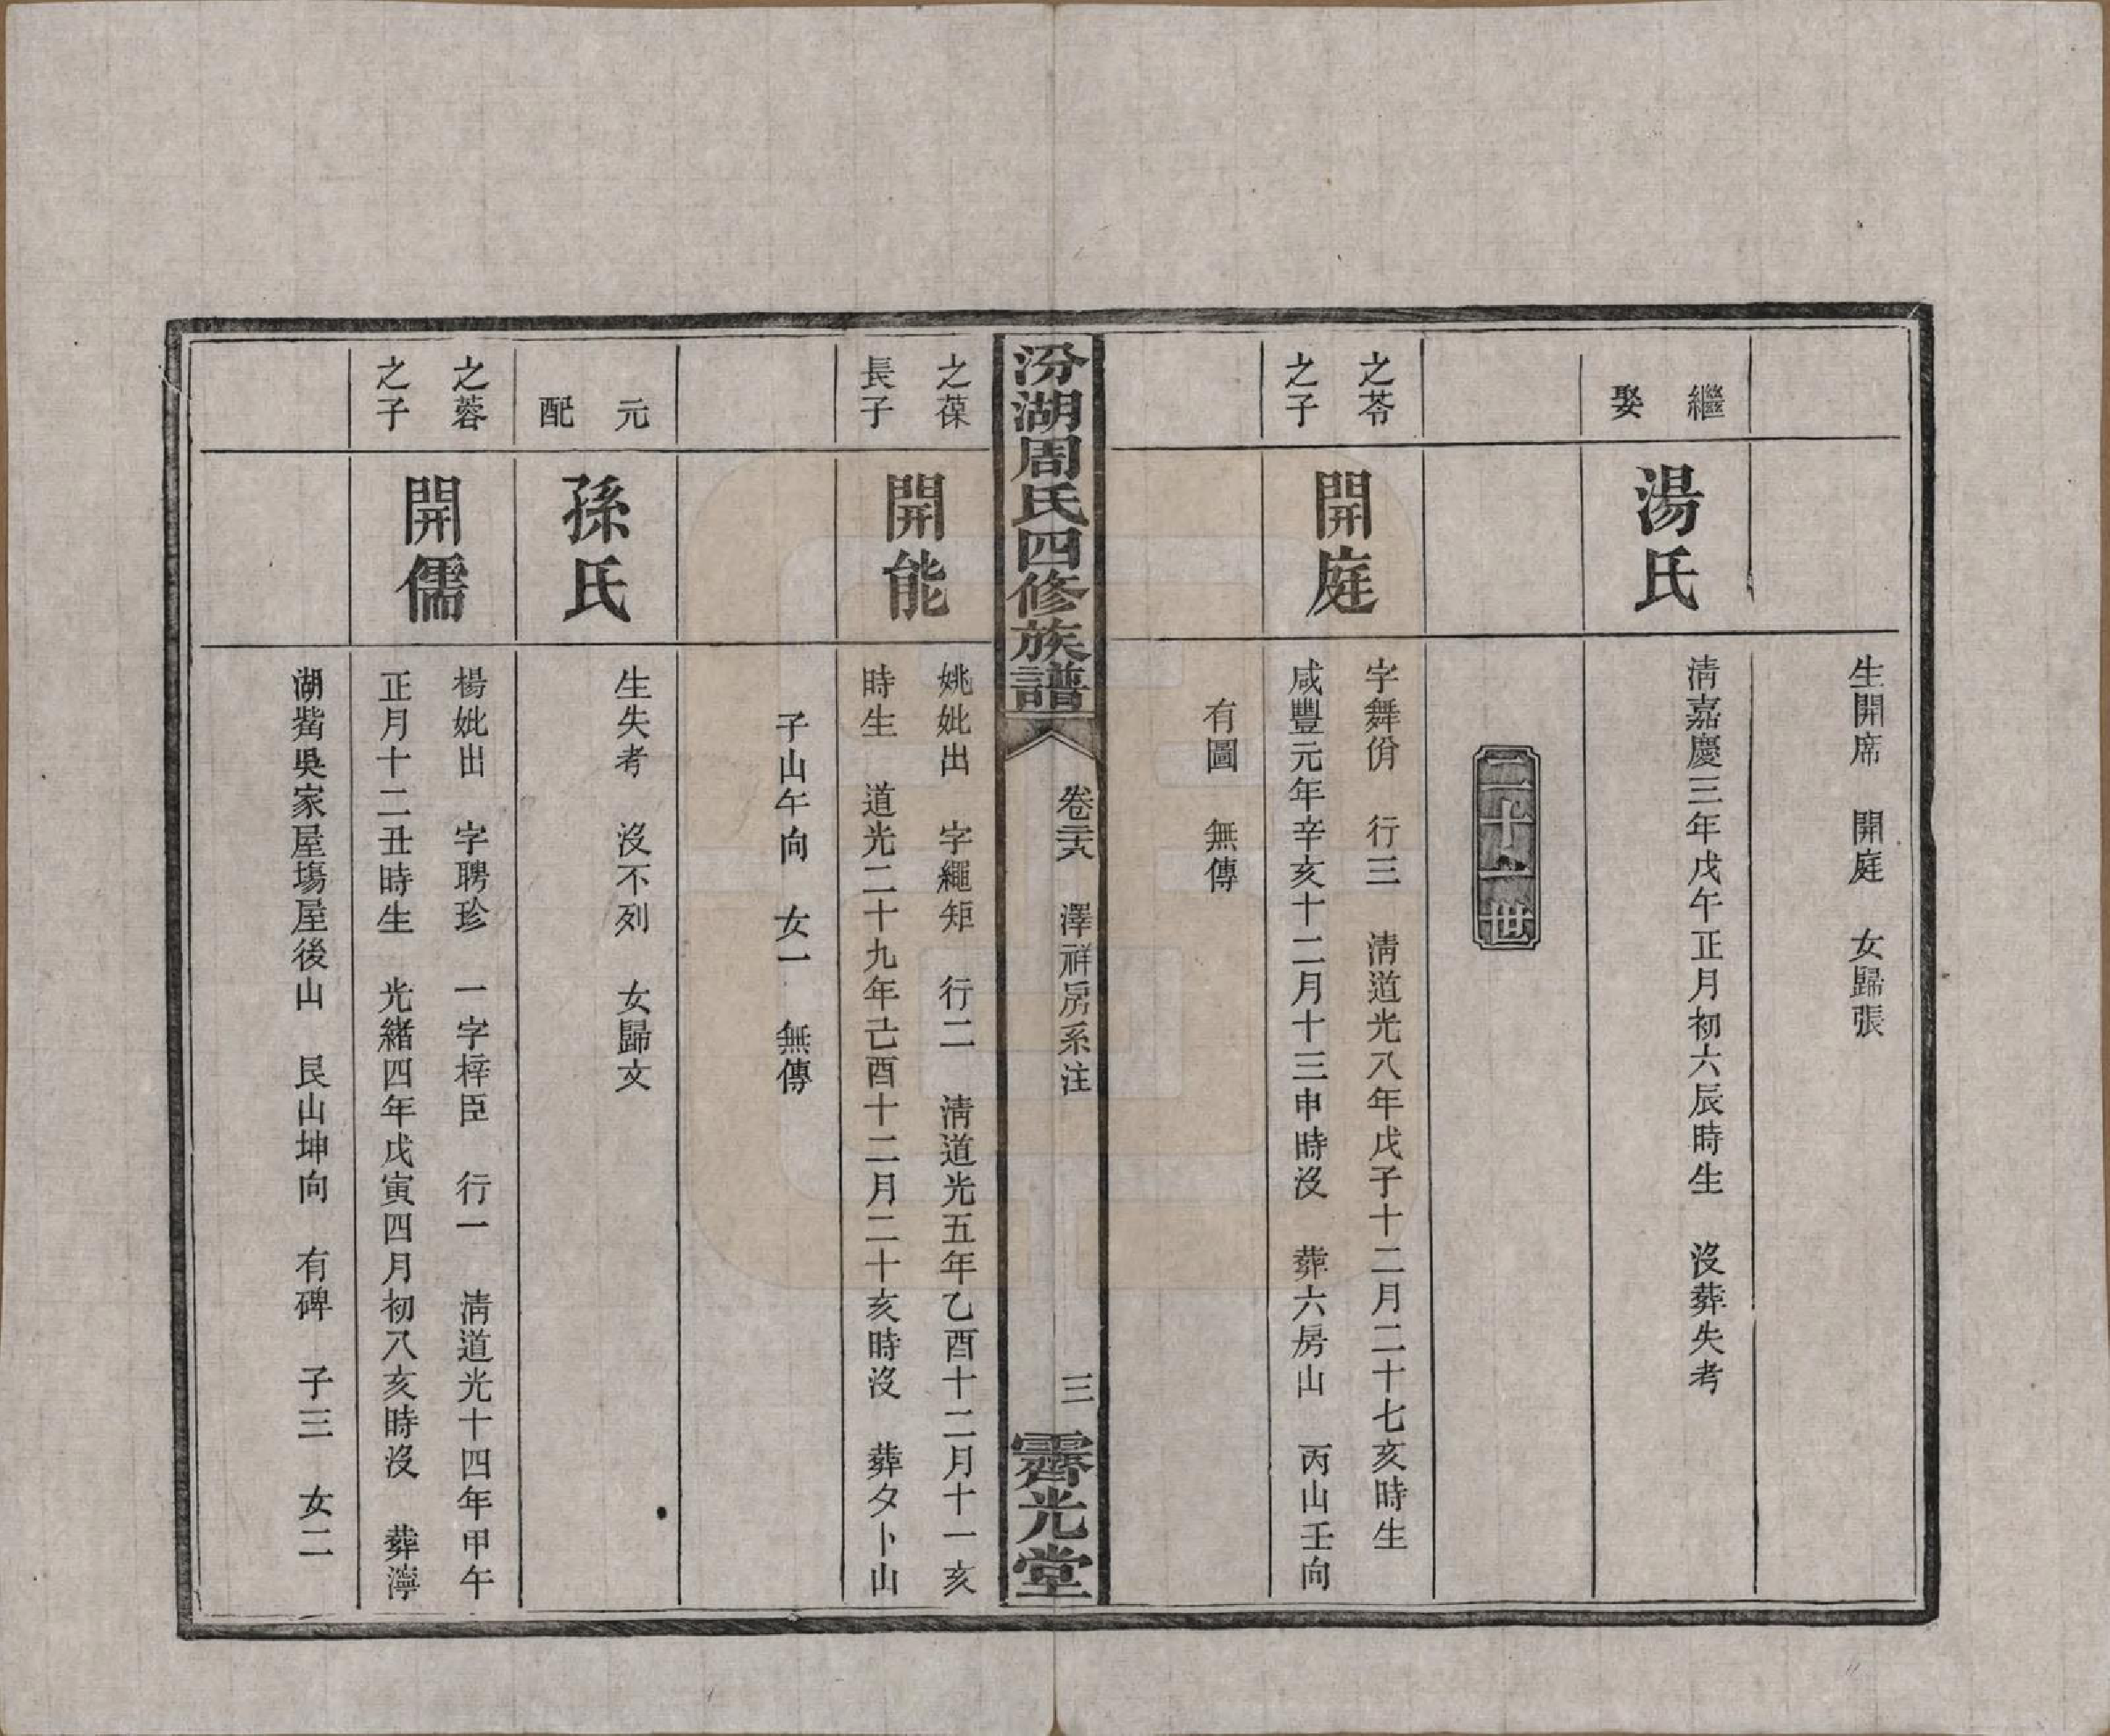 生開席　開庭　女歸張
繼娶
湯氏
清嘉慶三年戊午正月初六辰時生　沒葬失考
二十一世
之苓之子
開庭
字舞佾　行三　清道光八年戊子十二月二十七亥時生
咸豐元年辛亥十二月十三申時沒　葬六房山　丙山壬向
有圖　無傳
汾湖周氏四修族譜　卷二十六　澤祥房系注　三　霽光堂
之葆長子
開能
姚妣出　字繩矩　行二　清道光五年乙酉十二月十一亥
時生　道光二十九年己酉十二月二十亥時沒　葬夕卜山
子山午向　女一　無傳
元配
孫氏
生失考　沒不列　女歸文
之蓉之子
開儒
楊妣出　字聘珍　一字梓臣　行一　清道光十四年甲午
正月十二丑時生　光緒四年戊寅四月初八亥時沒　葬濘
湖觜吳家屋塲屋後山　艮山坤向　有碑　子三　女二